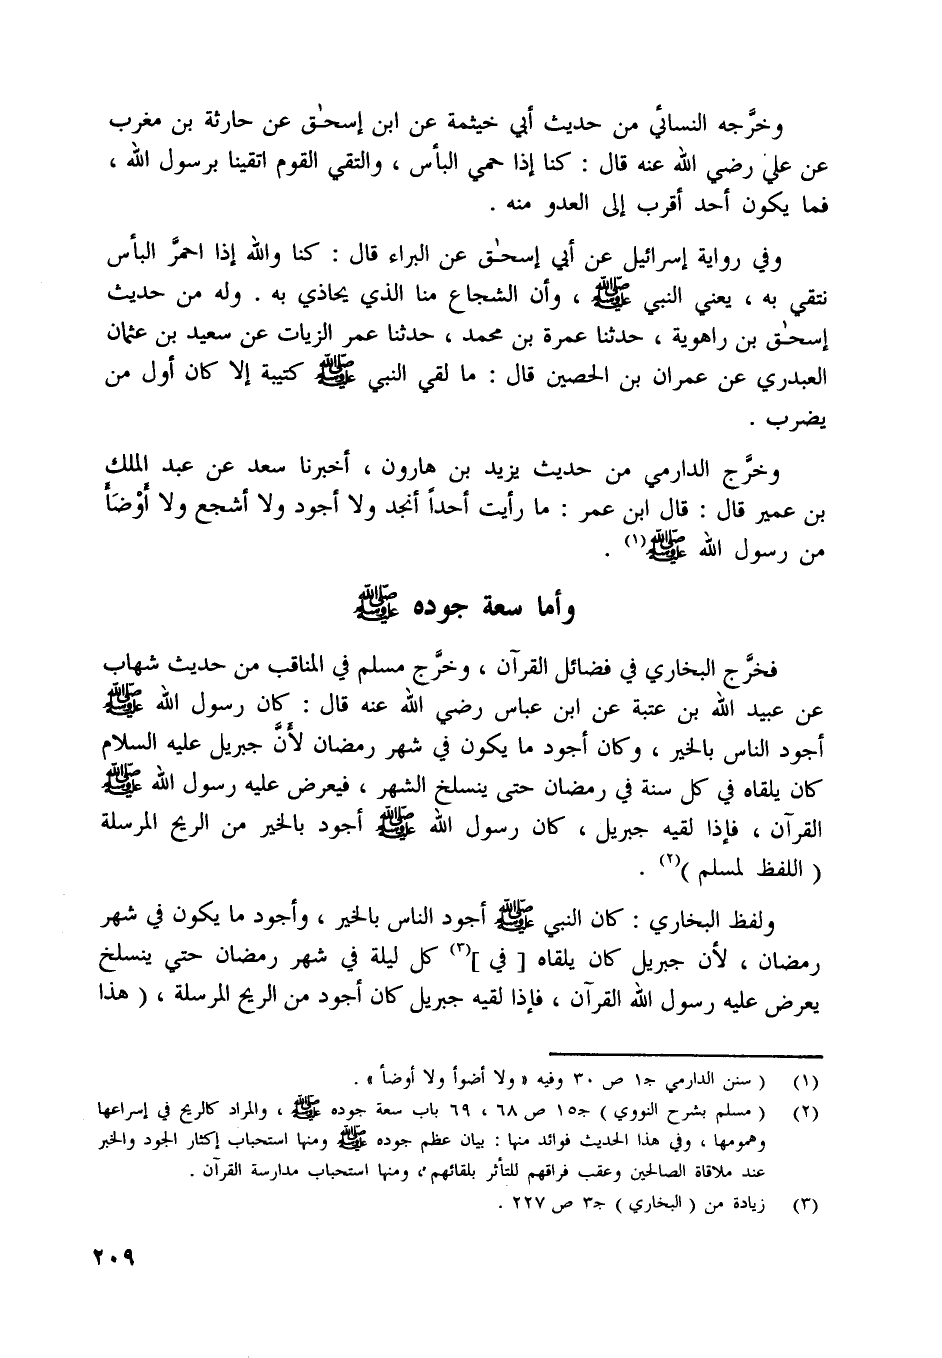 وخرَّجه النسائي من حديث أبي خيثمة عن ابن إسحٰق عن حارثة بن مغرب
عن علي رضي الله عنه قال : كنا إذا حمي البأس ، والتقي القوم اتقينا برسول الله ،
فما يكون أحد أقرب إلى العدو منه .
وفي رواية إسرائيل عن أبي إسحٰق عن البراء قال : كنا والله إذا احمرَّ البأس
نتقي به ، يعني النبي ﷺ ، وأن الشجاع منا الذي يحاذي به . وله من حديث
إسحٰق بن راهوية ، حدثنا عمرة بن محمد ، حدثنا عمر الزيات عن سعيد بن عثمان
العبدري عن عمران بن الحصين قال : ما لقي النبي ﷺ كتيبة إلا كان أول من
يضرب .
وخرَّج الدارمي من حديث يزيد بن هارون ، أخبرنا سعد عن عبد الملك
بن عمير قال : قال ابن عمر : ما رأيت أحداً أنجد ولا أجود ولا أشجع ولا أَوْضَأَ
من رسول الله ﷺ(١) .
وأما سعة جوده ﷺ
فخرَّج البخاري في فضائل القرآن ، وخرَّج مسلم في المناقب من حديث شهاب
عن عبيد الله بن عتبة عن ابن عباس رضي الله عنه قال : كان رسول الله ﷺ
أجود الناس بالخير ، وكان أجود ما يكون في شهر رمضان لأنَّ جبريل عليه السلام
كان يلقاه في كل سنة في رمضان حتى ينسلخ الشهر ، فيعرض عليه رسول الله ﷺ
القرآن ، فإذا لقيه جبريل ، كان رسول الله ﷺ أجود بالخير من الريح المرسلة
( اللفظ لمسلم )(٢) .
ولفظ البخاري : كان النبي ﷺ أجود الناس بالخير ، وأجود ما يكون في شهر
رمضان ، لأن جبريل كان يلقاه [ في ](٣) كل ليلة في شهر رمضان حتي ينسلخ
يعرض عليه رسول الله القرآن ، فإذا لقيه جبريل كان أجود من الريح المرسلة ، ( هذا
(١) ( سنن الدارمي جـ١ ص ٣٠ وفيه « ولا أضوأ ولا أوضأ » .
(٢) ( مسلم بشرح النووي ) جـ١٥ ص ٦٨ ، ٦٩ باب سعة جوده ﷺ ، والمراد كالريح في إسراعها
وهمومها ، وفي هذا الحديث فوائد منها : بيان عظم جوده ﷺ ومنها استحباب إكثار الجود والخير
عند ملاقاة الصالحين وعقب فراقهم للتأثر بلقائهم ، ومنها استحباب مدارسة القرآن .
(٣) زيادة من ( البخاري ) جـ٣ ص ٢٢٧ .
٢٠٩